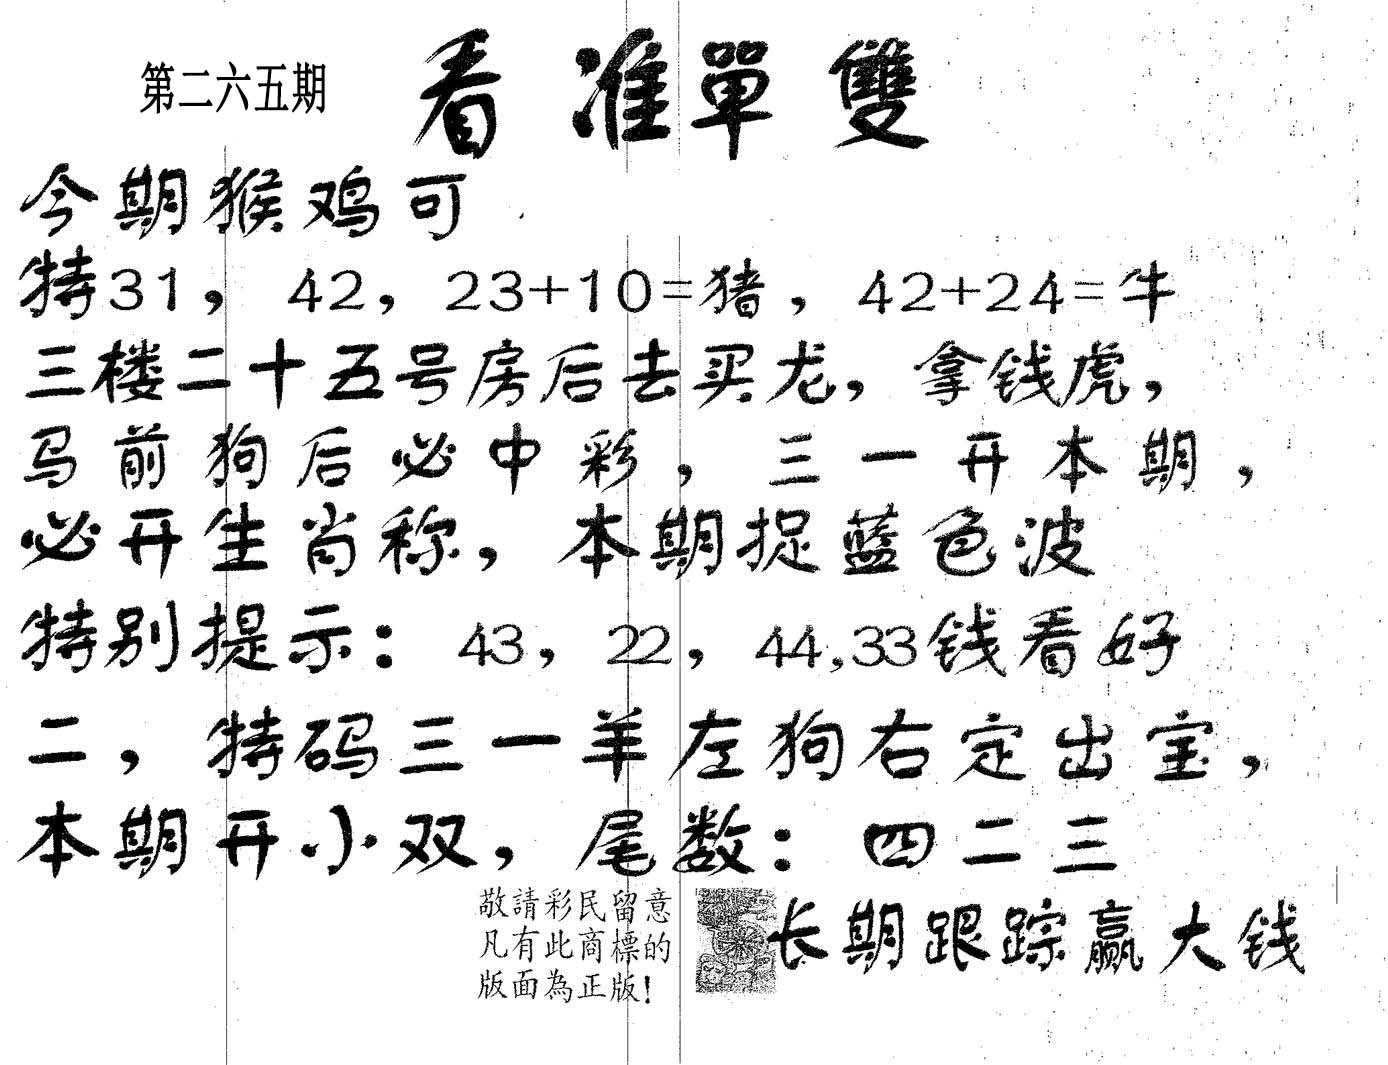 第二六五期 看准單雙
今期猴鸡可
特31，42，23+10=猪，42+24=牛
三楼二十五号房后去买龙，拿钱虎，
马前狗后必中彩，三一开本期，
必开生肖称，本期捉蓝色波
特别提示：43，22，44,33钱看好
二，特码三一羊左狗右定出宝，
本期开小双，尾数：四二三
敬請彩民留意
凡有此商標的
版面為正版!
长期跟踪赢大钱